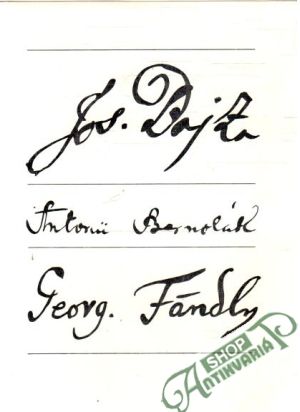 Jos. Bajza
Antonii Bernolák
Georg. Fándly
SHOP
ANTIKVARIÁT